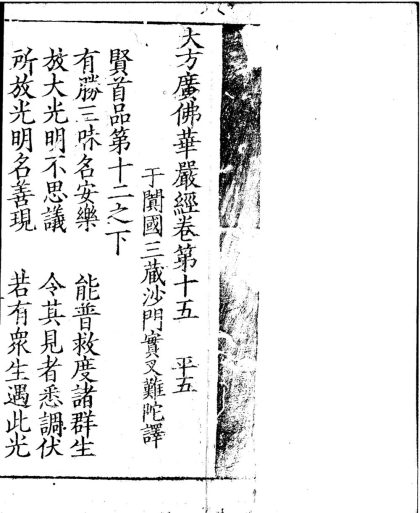 大方廣佛華嚴經卷第十五 平五
于闐國三藏沙門實叉難陀譯
賢首品第十二之下
有勝三昧名安樂 能普救度諸群生
放大光明不思議 令其見者悉調伏
所放光明名善現 若有衆生遇此光